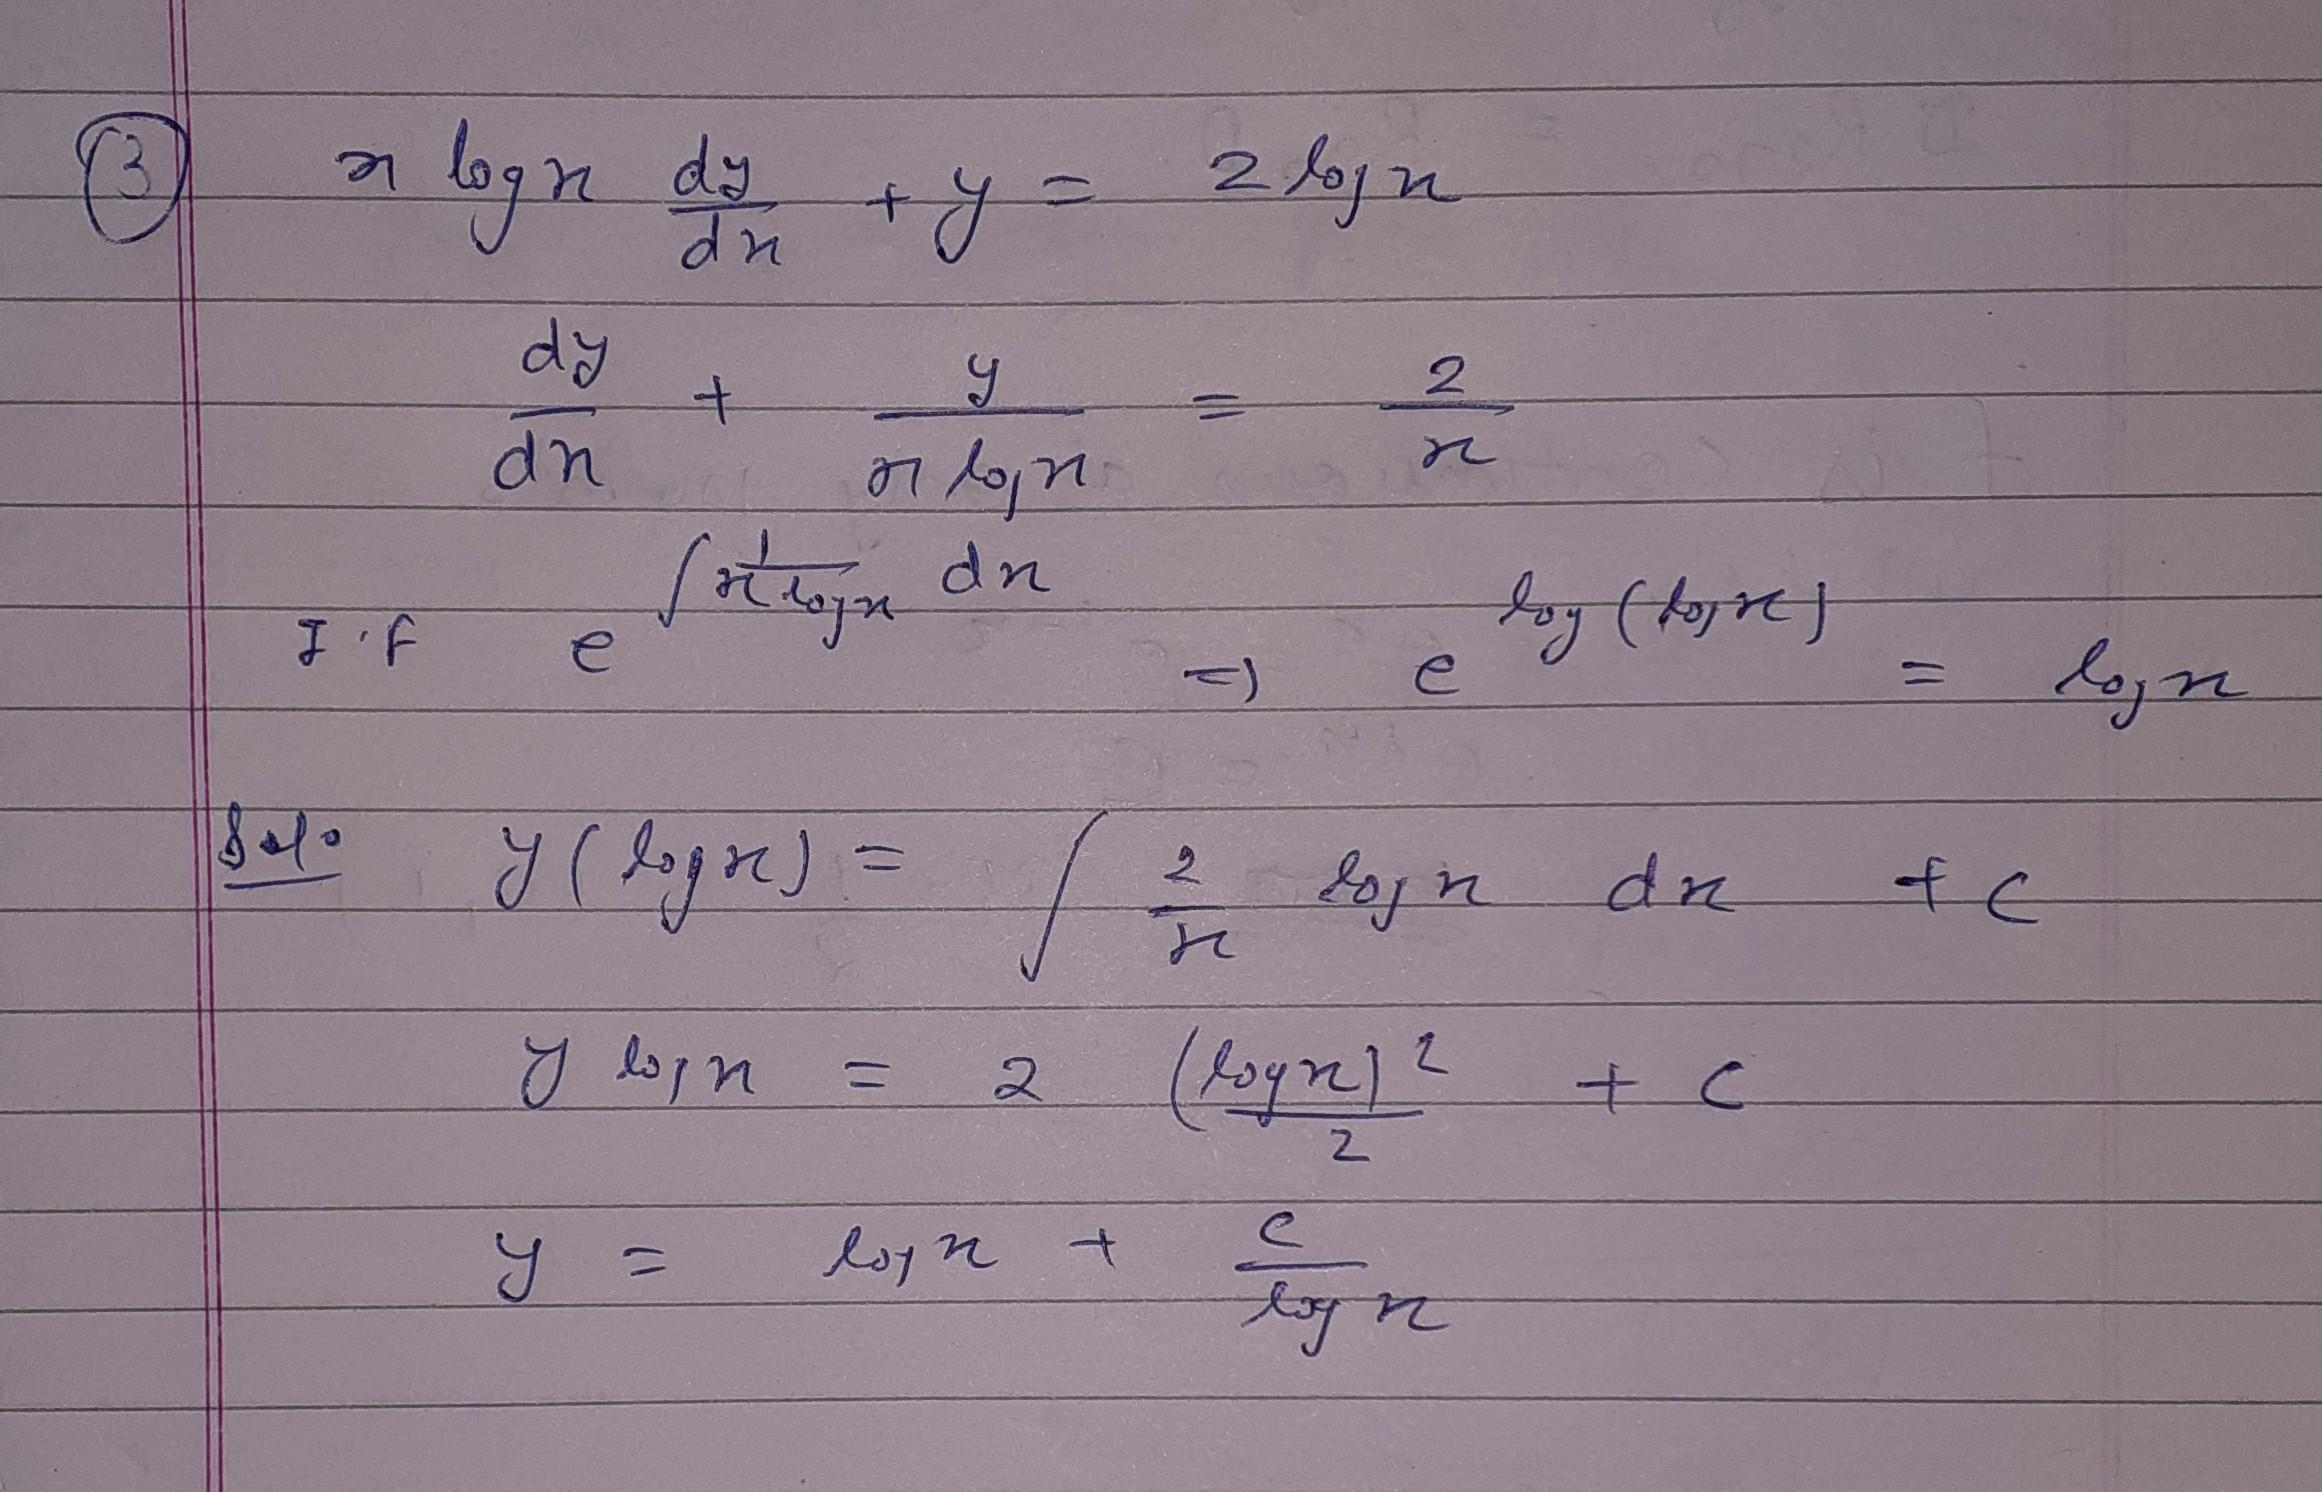 ③ x log x dy/dx + y = 2 log x
dy/dx + y/(x log x) = 2/x
I.F e^(∫ 1/(x log x) dx) => e^(log (log x)) = log x
Solo y (log x) = ∫ 2/x log x dx + C
y log x = 2 (log x)²/2 + C
y = log x + c/(log x)